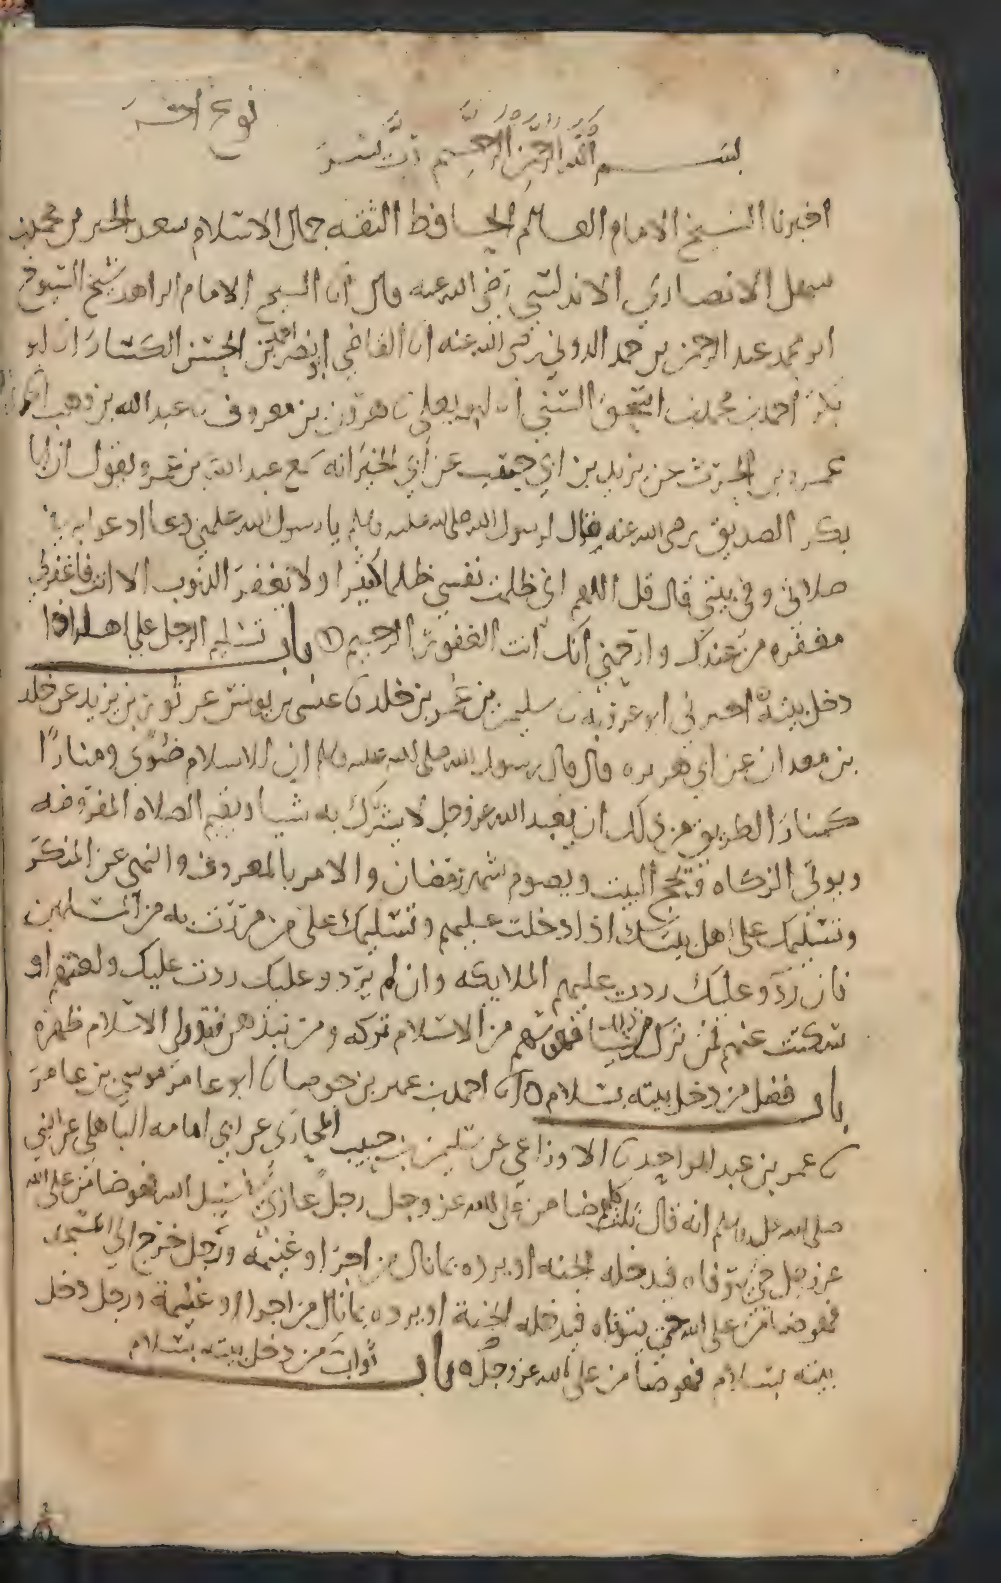 نوع اخر
بسم الله الرحمن الرحيم رب يسر
اخبرنا الشيخ الامام العالم الحافظ الثقه جمال الاسلام سعد الخير بن محمد بن
سهل الانصاري الاندلسي رضي الله عنه قال انا الشيخ الامام الزاهد شيخ الشيوخ
ابو محمد عبد الرحمن بن حمد الدوني رضي الله عنه انا القاضي ابو نصر احمد بن الحسين الكسار انا ابو
بكر احمد بن محمد بن اسحق السني انا ابو يعلى ثنا هرون بن معروف ثنا عبد الله بن وهب
عمرو بن الحرث عن يزيد بن ابي حبيب عن ابي الخير انه سمع عبد الله بن عمرو يقول ان ابا
بكر الصديق رضي الله عنه قال لرسول الله صلى الله عليه وسلم يا رسول الله علمني دعا ادعوا به في
صلاتي وفي بيتي قال قل اللهم اني ظلمت نفسي ظلما كثيرا ولا يغفر الذنوب الا انت فاغفر لي
مغفره من عندك وارحمني انك انت الغفور الرحيم باب تسليم الرجل على اهله اذا
دخل بيته اخبرني ابو عروبه ثنا سليمن بن عمر بن خلد ثنا عيسى بن يونس عن ثور بن يزيد عن خلد
بن معدان عن ابي هريره قال قال رسول الله صلى الله عليه وسلم ان للاسلام ضوى ومنارا
كمنار الطريق من ذلك ان يعبد الله عز وجل لا يشرك به شيا ويقيم الصلاه المفروضه
ويوتي الزكاه ويحج البيت ويصوم شهر رمضان والامر بالمعروف والنهي عن المنكر
وتسليمك على اهل بيتك اذا دخلت عليهم وتسليمك على من مررت به من المسلمين
فان ردو عليك ردت عليهم الملايكه وان لم يردو عليك ردت عليك ولعنتهم او
سكتت عنهم فمن ترك من ذلك شيا فهو سهم من الاسلام تركه ومن نبذهن فقد ولى الاسلام ظهره
باب فضل من دخل بيته بسلام ثنا احمد بن عمير بن جوصا ثنا ابو عامر موسى بن عامر
ثنا عمر بن عبد الواحد ثنا الاوزاعي عن سليمن بن حبيب المحاربي عن ابي امامه الباهلي عن النبي
صلى الله عليه وسلم انه قال ثلثه كلهم ضامن على الله عز وجل رجل غازي في سبيل الله فهو ضامن على الله
عز وجل حتى يتوفاه فيدخله الجنه او يرده بما نال من اجر او غنيمه ورجل خرج الى المسجد
فهو ضامن على الله حتى يتوفاه فيدخله الجنة او يرده بما نال من اجر او غنيمة ورجل دخل
بيته بسلام فهو ضامن على الله عز وجل باب ثواب من دخل بيته بسلام